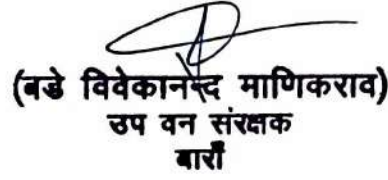 (बडे विवेकानन्द माणिकराव)
उप वन संरक्षक
बारॉं